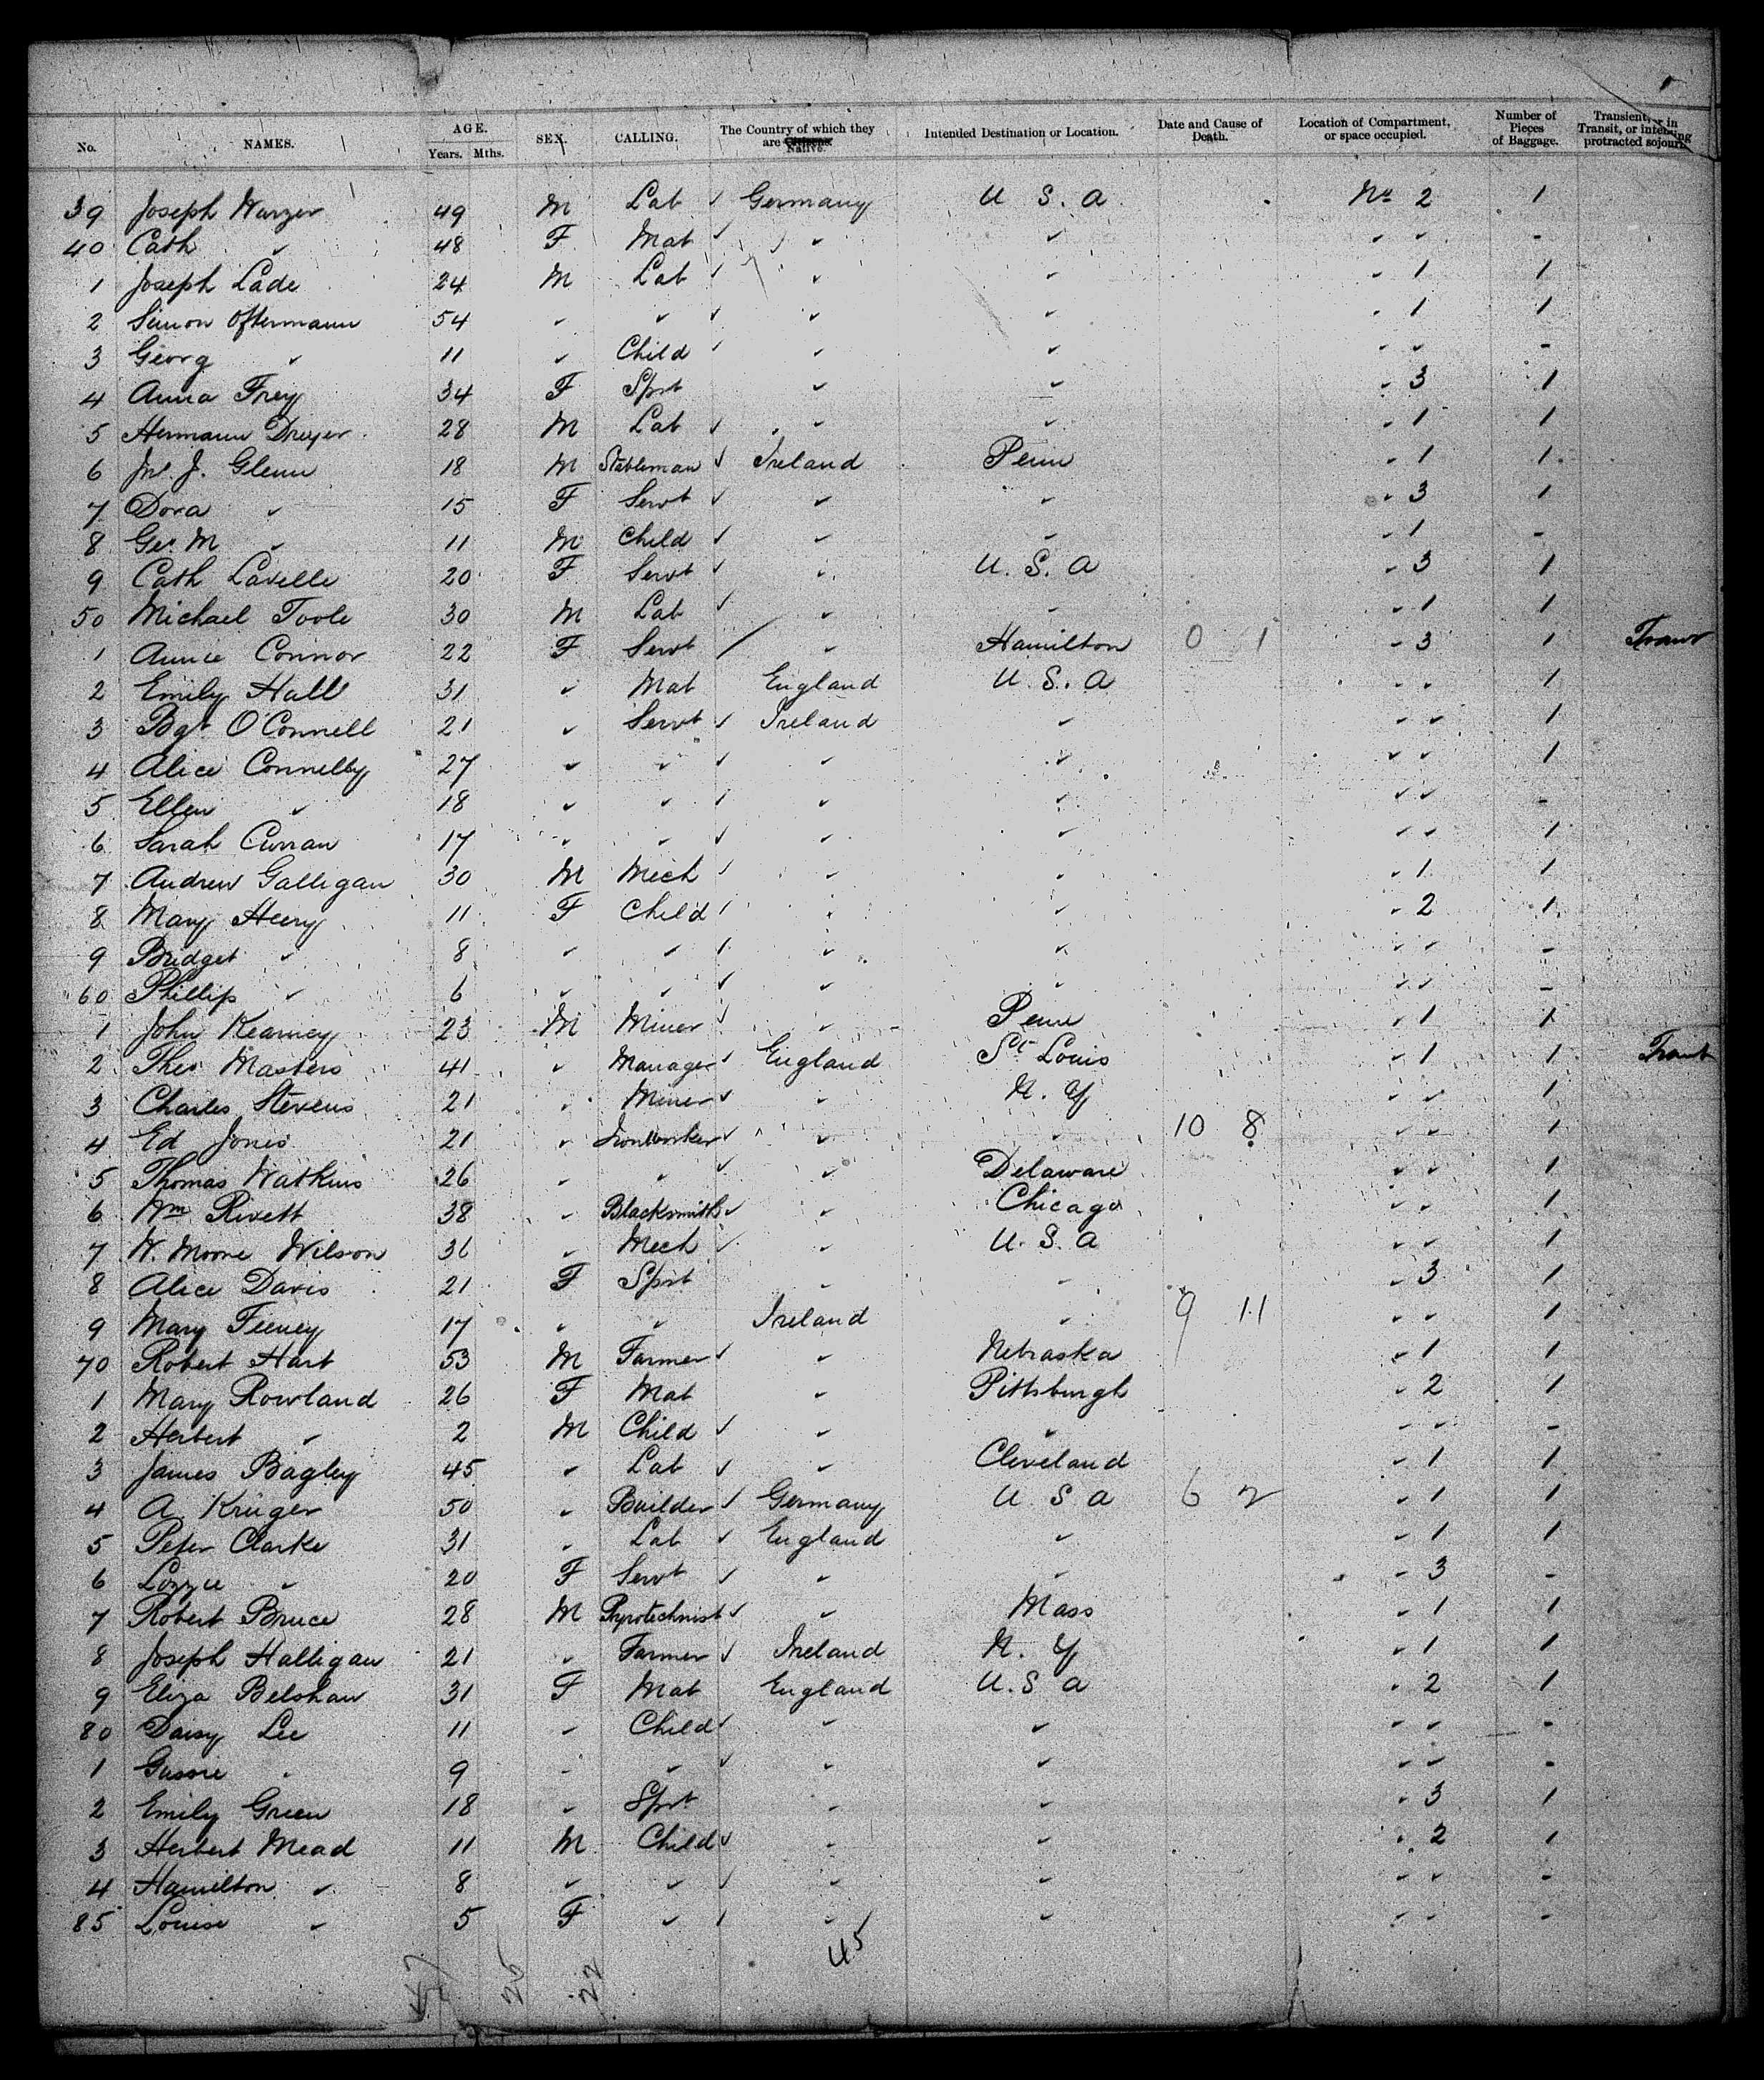 No. NAMES. AGE. Years. Mths. SEX. CALLING. The Country of which they are Citizens Native. Intended Destination or Location. Date and Cause of Death. Location of Compartment, or space occupied. Number of Pieces of Baggage. Transient, or in Transit, or intending protracted sojourn.
39 Joseph Wurzer 49 M Lab ✓ Germany U. S. A No 2 1
40 Cath ✓ 48 F Mat ✓ ✓ ✓ ✓ ✓ -
1 Joseph Lade 24 M Lab ✓ ✓ ✓ - 1 1
2 Simon Oftermann 54 ✓ ✓ ✓ ✓ ✓ - 1 1
3 Georg ✓ 11 ✓ Child ✓ ✓ ✓ ✓ ✓ -
4 Anna Frey 34 F Spst ✓ ✓ - 3 1
5 Hermann Dreyer 28 M Lab ✓ ✓ ✓ - 1 1
6 Jno. J. Glenn 18 M Stableman ✓ Ireland Penn - 1 1
7 Dora ✓ 15 F Servt ✓ ✓ ✓ - 3 1
8 Geo. M ✓ 11 M Child ✓ ✓ ✓ - 1 -
9 Cath Lavelle 20 F Servt ✓ ✓ U. S. A - 3 1
50 Michael Toole 30 M Lab ✓ ✓ ✓ - 1 1
1 Annie Connor 22 F Servt / ✓ Hamilton 0 1 - 3 1
2 Emily Hall 31 ✓ Mat England U. S. A ✓ ✓ 1
3 Bgt O'Connell 21 ✓ Servt ✓ Ireland ✓ ✓ ✓ 1
4 Alice Connelly 27 ✓ ✓ ✓ ✓ ✓ ✓ ✓ 1
5 Ellen ✓ 18 ✓ ✓ ✓ ✓ ✓ ✓ ✓ -
6 Sarah Curran 17 ✓ ✓ ✓ ✓ ✓ ✓ ✓ 1
7 Andrew Galligan 30 M Mech ✓ ✓ ✓ - 1 1
8 Mary Heery 11 F Child ✓ ✓ ✓ - 2 1
9 Bridget ✓ 8 ✓ ✓ ✓ ✓ ✓ ✓ ✓ -
60 Phillip ✓ 6 ✓ ✓ ✓ ✓ ✓ ✓ ✓ -
1 John Kearney 23 M Miner ✓ ✓ Penn - 1 1
2 Theo Masters 41 ✓ Manager ✓ England St Louis - 1 1
3 Charles Stevens 21 ✓ Miner ✓ ✓ N. Y ✓ ✓ 1
4 Ed Jones 21 ✓ Ironworker ✓ ✓ ✓ 10 8 ✓ ✓ 1
5 Thomas Watkins 26 ✓ ✓ ✓ ✓ Delaware ✓ ✓ 1
6 Wm Rivett 38 ✓ Blacksmith ✓ ✓ Chicago ✓ ✓ 1
7 W. Moore Wilson 36 ✓ Mech ✓ ✓ U. S. A ✓ ✓ 1
8 Alice Davis 21 F Spst ✓ ✓ - 3 1
9 Mary Feeney 17 ✓ ✓ Ireland ✓ 9 11 ✓ ✓ 1
70 Robert Hart 53 M Farmer ✓ ✓ Nebraska - 1 1
1 Mary Rowland 26 F Mat ✓ Pittsburgh - 2 1
2 Herbert ✓ 2 M Child ✓ ✓ ✓ ✓ ✓ -
3 James Bagley 45 ✓ Lab ✓ ✓ Cleveland - 1 1
4 A. Kruger 50 ✓ Builder ✓ Germany U S A 6 2 - 1 1
5 Peter Clarke 31 ✓ Lab ✓ England ✓ - 1 1
6 Lizzie ✓ 20 F Servt ✓ ✓ ✓ - 3 -
7 Robert Bruce 28 M Pyrotechnist ✓ ✓ Mass - 1 1
8 Joseph Halligan 21 ✓ Farmer ✓ Ireland N. Y - 1 1
9 Eliza Belshaw 31 F Mat England U. S A - 2 1
80 Daisy Lee 11 ✓ Child ✓ ✓ ✓ ✓ ✓ -
1 Gussie ✓ 9 ✓ ✓ ✓ ✓ ✓ ✓ ✓ -
2 Emily Green 18 ✓ Spst ✓ ✓ - 3 1
3 Herbert Mead 11 M Child ✓ ✓ ✓ - 2 1
4 Hamilton ✓ 8 ✓ ✓ ✓ ✓ ✓ ✓ ✓ -
85 Louise ✓ 5 F ✓ ✓ ✓ ✓ ✓ ✓ -
45
47 25 22